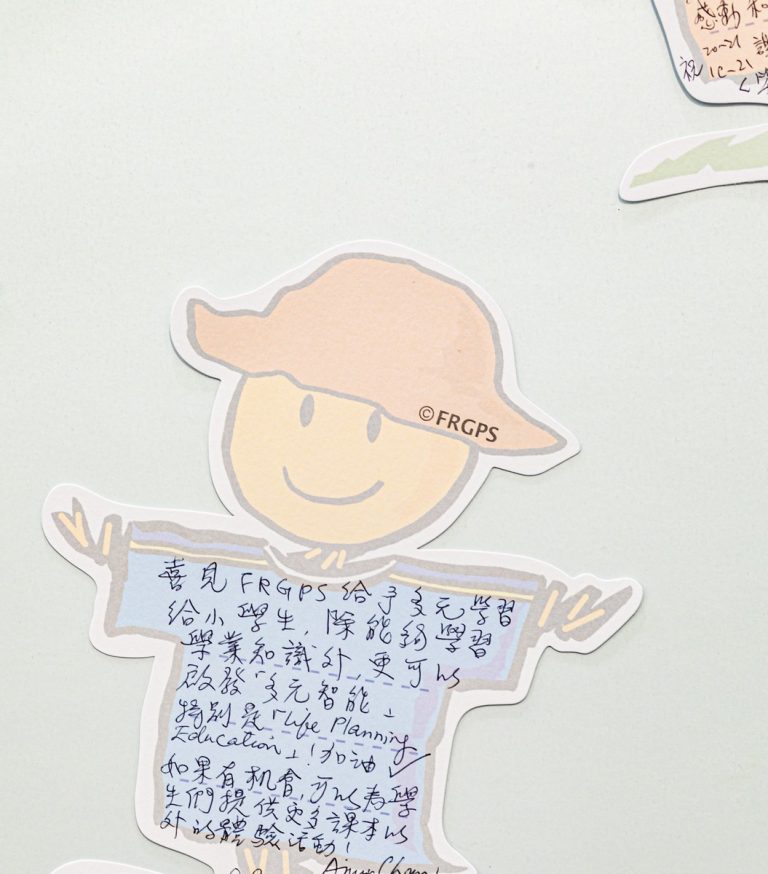 感動和
20-21
祝 1C-21
©FRGPS
喜見FRGPS給予多元學習
給小學生,除能夠學習
學業知識外,更可以
啟發「多元智能」
特別是「Life Planning
Education」!加油✓
如果有机會,可以為學
生們提供更多課本以
外的體驗活動!